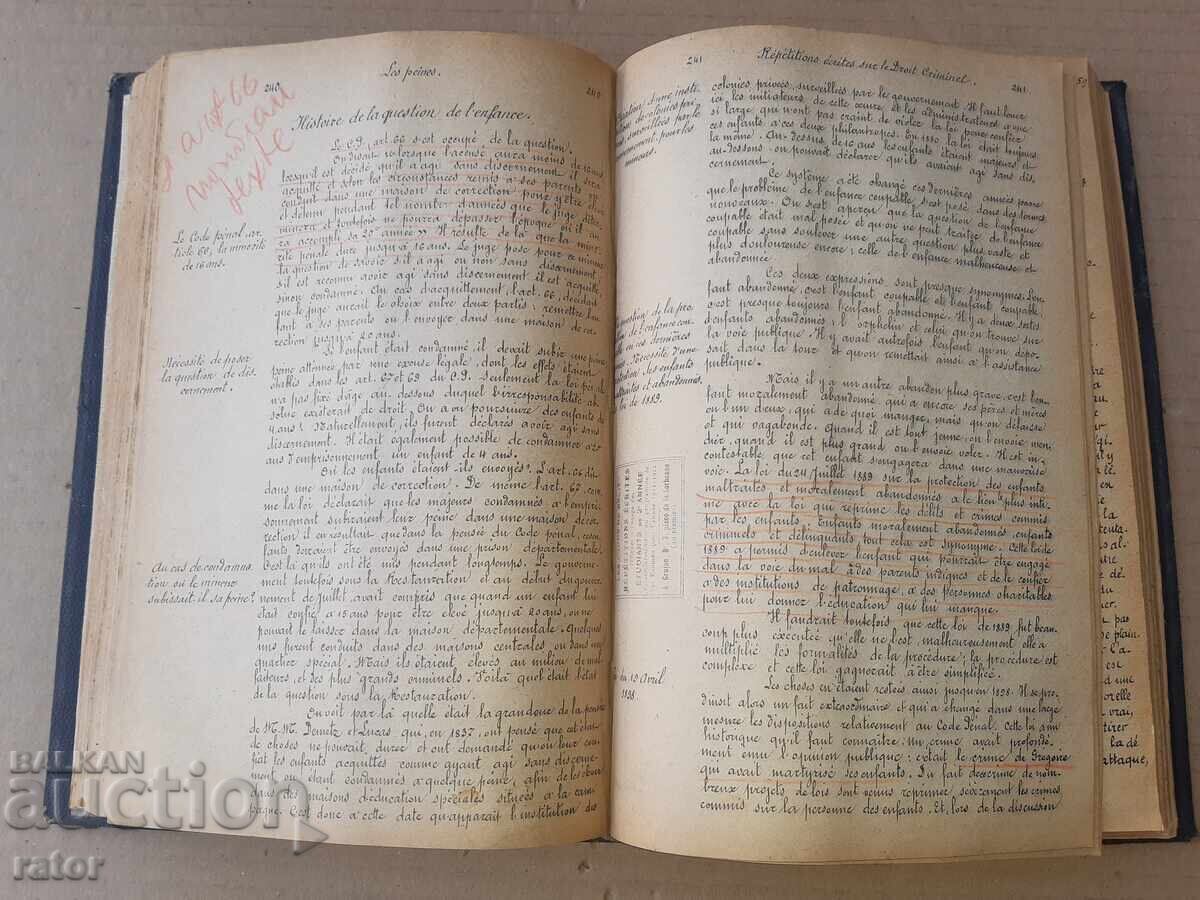 240
Les peines.
240
Histoire de la question de l'enfance.
art 66
Le Code pénal, ar-
ticle 66, la minorité
de 16 ans.
Le C.P., art. 66 s'est occupé de la question.
On disait : « lorsque l'accusé aura moins de 16 ans
lorsqu'il est décidé qu'il a agi sans discernement il sera
acquitté et selon les circonstances remis à ses parents ou
conduit dans une maison de correction pour y être élevé
et détenu pendant tel nombre d'années que le juge déter-
minera et toutefois ne pourra dépasser l'époque où il au-
ra accompli sa 20e année ». Il résulte de là que la mino-
rité pénale dure jusqu'à 16 ans. Le juge pose pour ce mineur
la question de savoir s'il a agi ou non sans discernement,
s'il est reconnu avoir agi sans discernement il est acquitté,
sinon condamné. Au cas d'acquittement, l'art. 66, décidait
que le juge aurait le choix entre deux partis, remettre l'en-
fant à ses parents ou l'envoyer dans une maison de cor-
rection jusqu'à 20 ans.
Nécessité de poser
la question de dis-
cernement.
Si l'enfant était condamné il devait subir une peine
atténuée par une excuse légale, dont les effets étaient
établis dans les art. 67 et 69 du C.P. Seulement la loi pénale
n'a pas fixé d'âge au dessous duquel l'irresponsabilité ab-
solue existerait de droit, On a vu poursuivre des enfants de
4 ans ! Naturellement, ils furent déclarés avoir agi sans
discernement. Il était également possible de condamner à 20
ans d'emprisonnement un enfant de 4 ans.
Où les enfants étaient-ils envoyés ? L'art. 66 dit
dans une maison de correction. De même l'art. 67, com-
me la loi déclarait que les majeurs condamnés à l'empri-
sonnement subiraient leur peine dans une maison de cor-
rection il en resultait que dans la pensée du Code pénal, ces en-
fants devraient être envoyés dans une prison départementale.
Au cas de condamna-
tion où le mineur
subissait-il sa peine ?
C'est là qu'ils ont été mis pendant longtemps. Le gouverne-
ment toutefois sous la Restauration et au début du gouver-
nement de Juillet, avait compris que quand un enfant
était confié à 15 ans pour être élevé jusqu'à 20 ans, on ne
pouvait le laisser dans la maison départementale. Quelques
uns furent conduits dans des maisons centrales ou dans un
quartier spécial. Mais ils étaient élevés au milieu de mal-
faiteurs, et des plus grands criminels. Voilà quel était l'état
de la question sous la Restauration.
On voit par là quelle était la grandeur de la pensée
de M.M. Demetz et Lucas, qui, en 1837, ont pensé que cet état
de choses ne pouvait durer et ont demandé qu'on leur con-
fiât les enfants acquittés comme ayant agi sans discerne-
ment ou étant condamnés à quelque peine, afin de les élever
dans des maisons d'éducation spéciales situées à la cam-
pagne. C'est donc à cette date qu'apparaît l'institution des
241
Répétitions écrites sur le Droit Criminel.
241
colonies privées, surveillées par le gouvernement. Il faut louer
ici, les initiateurs de cette œuvre, et les administrateurs à vue
si large qui n'ont pas craint de violer la loi pour confier
ces enfants à ces deux philanthropes. En 1832 la loi était toujours
la même. Au-dessus de 16 ans les enfants étaient majeurs et
au-dessous on pouvait déclarer qu'ils avaient agi sans dis-
cernement.
Ce système a été changé ces dernières années parce
que le problème de l'enfance coupable, s'est posé dans des termes
nouveaux. On s'est aperçu que la question de l'enfance
coupable était mal posée et qu'on ne peut traiter de l'enfance
coupable sans soulever une autre question plus vaste et
plus douloureuse encore ; celle de l'enfance malheureuse et
abandonnée
Ces deux expressions sont presque synonymes. L'en-
fant abandonné, c'est l'enfant coupable et l'enfant coupable,
c'est presque toujours l'enfant abandonné. Il y a deux sortes
d'enfants abandonnés ; l'orphelin et celui qu'on trouve sur
la voie publique. Il y avait autrefois l'enfant qu'on dépo-
sait dans la tour et qu'on remettait ainsi à l'assistance
publique.
enfants
maltraités et abandonnés,
loi de 1889.
Mais il y a un autre abandon plus grave, c'est l'en-
fant moralement abandonné, qui a encore ses pères et mères
ou l'un deux, qui a de quoi manger, mais qu'on délaisse
et qui vagabonde. Quand il est tout jeune, on l'envoie men-
dier, quand il est plus grand on l'envoie voler. Il est in-
contestable que cet enfant s'engagera dans une mauvaise
voie. La loi du 24 juillet 1889 sur la protection des enfants
maltraités et moralement abandonnés a le lien le plus inti-
me avec la loi qui réprime les délits et crimes commis
par les enfants. Enfants moralement abandonnés, enfants
criminels et délinquants, tout cela est synonyme. Cette loi de
1889 a permis d'enlever l'enfant qui pourrait être engagé
dans la voie du mal à des parents indignes et de le confier
à des institutions de patronnage, à des personnes charitables
pour lui donner l'éducation qui lui manque.
RÉPÉTITIONS ÉCRITES
ÉTUDIANTS de 2e ANNÉE
Il faudrait toutefois, que cette loi de 1889 fut beau-
coup plus executée qu'elle ne l'est, malheureusement elle a
multiplié les formalités de la procédure ; la procédure est
complexe et cette loi gagnerait à être simplifiée.
du 19 Avril
1898.
Les choses en étaient restées ainsi jusqu'en 1898. Il se pro-
duisit alors un fait extraordinaire et qui a changé dans une large
mesure les dispositions relativement au Code Pénal. Cette loi a un
historique qu'il faut connaître : Un crime avait profondé-
ment ému l'opinion publique ; c'était le crime de Grégoire
qui avait martyrisé ses enfants. Du fait de ce crime de nom-
breux projets de lois sont venus réprimer les crimes
commis sur la personne des enfants. Et, lors de la discussion
BALKAN
auction
rator